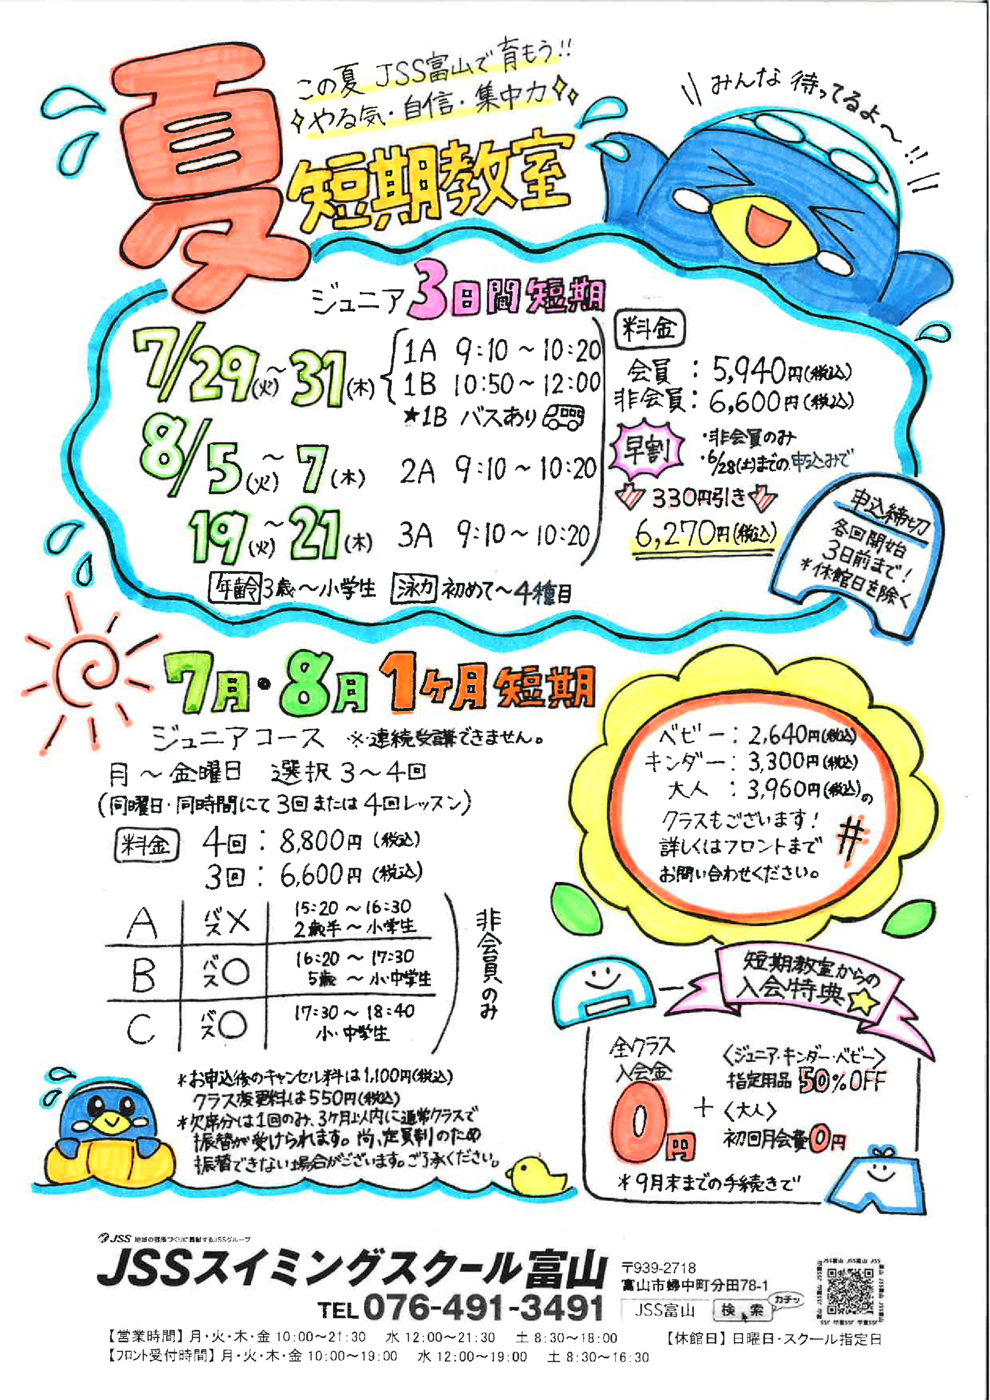 夏
この夏 JSS富山で育もう!!
やる気・自信・集中力
短期教室
みんな待ってるよ～!!
ジュニア3日間短期
7/29(火)～31(木)
1A 9:10～10:20
1B 10:50～12:00
★1B バスあり
8/5(火)～7(木) 2A 9:10～10:20
19(火)～21(木) 3A 9:10～10:20
年齢 3歳～小学生 泳力 初めて～4種目
料金
会員：5,940円(税込)
非会員：6,600円(税込)
早割
・非会員のみ
・6/28(土)までの申込みで
330円引き
6,270円(税込)
申込締切
各回開始
3日前まで！
*休館日を除く
7月・8月1ヶ月短期
ジュニアコース ※連続受講できません。
月～金曜日 選択3～4回
(同曜日・同時間にて3回または4回レッスン)
料金 4回：8,800円(税込)
3回：6,600円(税込)
A バス× 15:20～16:30
2歳半～小学生
B バス○ 16:20～17:30
5歳～小・中学生
C バス○ 17:30～18:40
小・中学生
非会員のみ
ベビー：2,640円(税込)
キンダー：3,300円(税込)
大人：3,960円(税込)の
クラスもございます！
詳しくはフロントまで
お問い合わせください。
*お申込後のキャンセル料は1,100円(税込)
クラス変更料は550円(税込)
*欠席分は1回のみ、3ヶ月以内に通常クラスで
振替が受けられます。尚、定員制のため
振替できない場合がございます。ご了承ください。
短期教室からの
入会特典
全クラス
入会金
0円
+
〈ジュニア・キンダー・ベビー〉
指定用品50%OFF
〈大人〉
初回月会費0円
*9月末までの手続きで
JSS 地域の健康づくりに貢献するJSSグループ
JSSスイミングスクール富山
TEL 076-491-3491
〒939-2718
富山市婦中町分田78-1
JSS富山 検索 カチッ
【営業時間】月・火・木・金 10:00～21:30 水 12:00～21:30 土 8:30～18:00 【休館日】日曜日・スクール指定日
【フロント受付時間】月・火・木・金 10:00～19:00 水 12:00～19:00 土 8:30～16:30